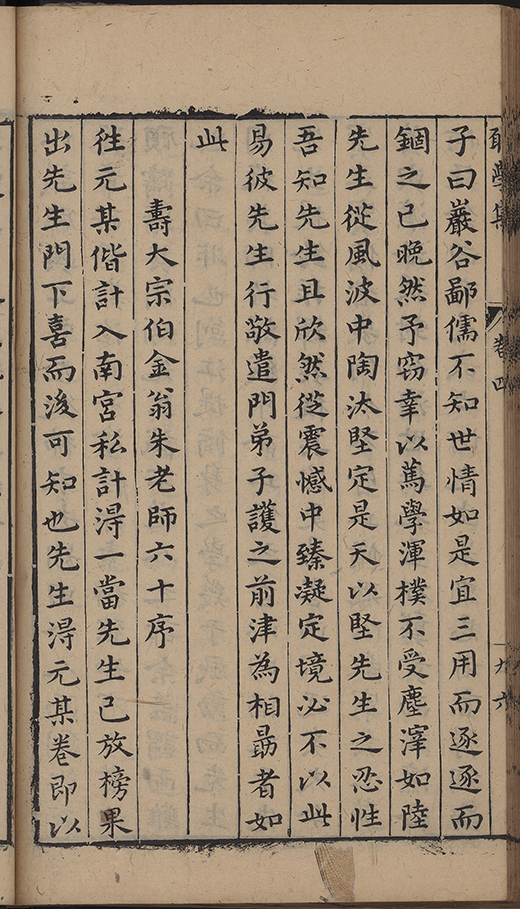 敢學集 卷四 九六
子曰巖谷鄙儒不知世情如是宜三用而逐逐而
錮之已晚然予竊幸以篤學渾樸不受塵滓如陸
先生從風波中陶汰堅定是天以堅先生之忍性
吾知先生且欣然從震憾中臻凝定境必不以此
易彼先生行敬遣門弟子護之前津為相勗者如
此
壽大宗伯金翁朱老師六十序
徃元某偕計入南宮私計淂一當先生已放榜果
出先生門下喜而後可知也先生淂元某卷即以